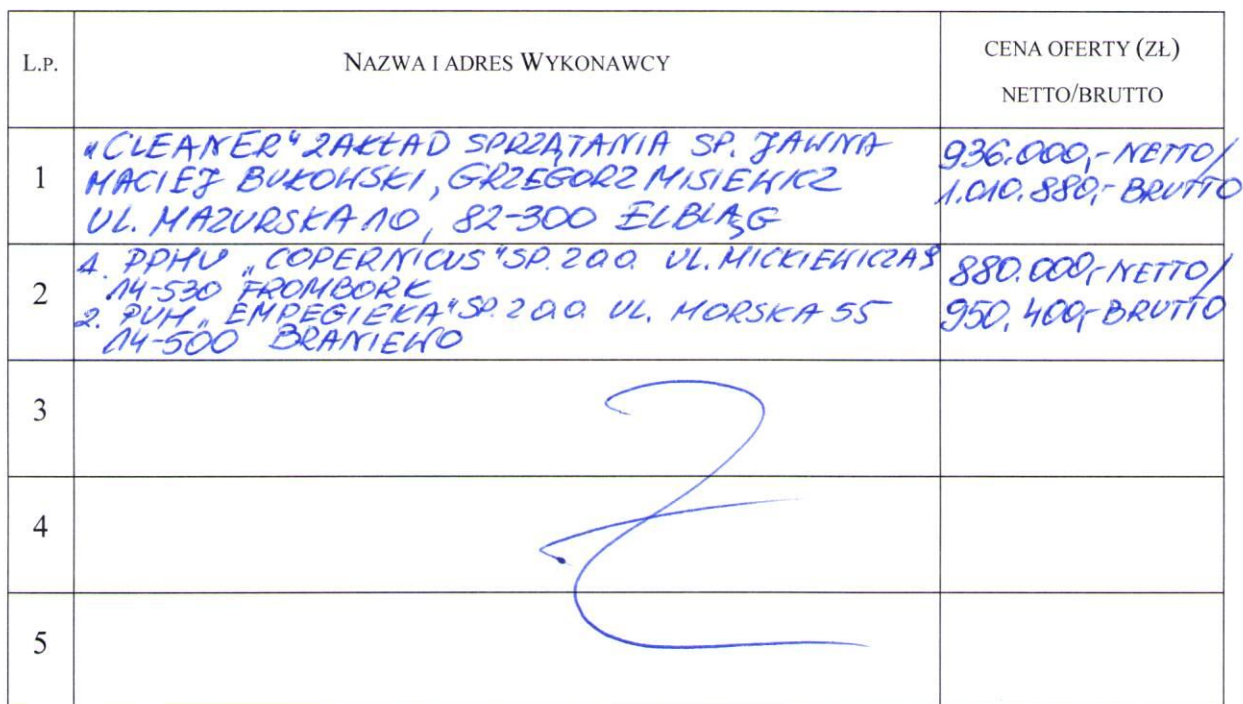 L.P. NAZWA I ADRES WYKONAWCY CENA OFERTY (ZŁ)
NETTO/BRUTTO
1
„CLEANER" ZAKŁAD SPRZĄTANIA SP. JAWNA
MACIEJ BUKOWSKI, GRZEGORZ MISIEWICZ
UL. MAZURSKA 10, 82-300 ELBLĄG
936.000,- NETTO/
1.010.880,- BRUTTO
2
1. PPHU „COPERNICUS" SP. Z O.O. UL. MICKIEWICZA
14-530 FROMBORK
2. PUH „EMPEGIEKA" SP. Z O.O. UL. MORSKA 55
14-500 BRANIEWO
880.000,- NETTO/
950.400,- BRUTTO
3
4
5